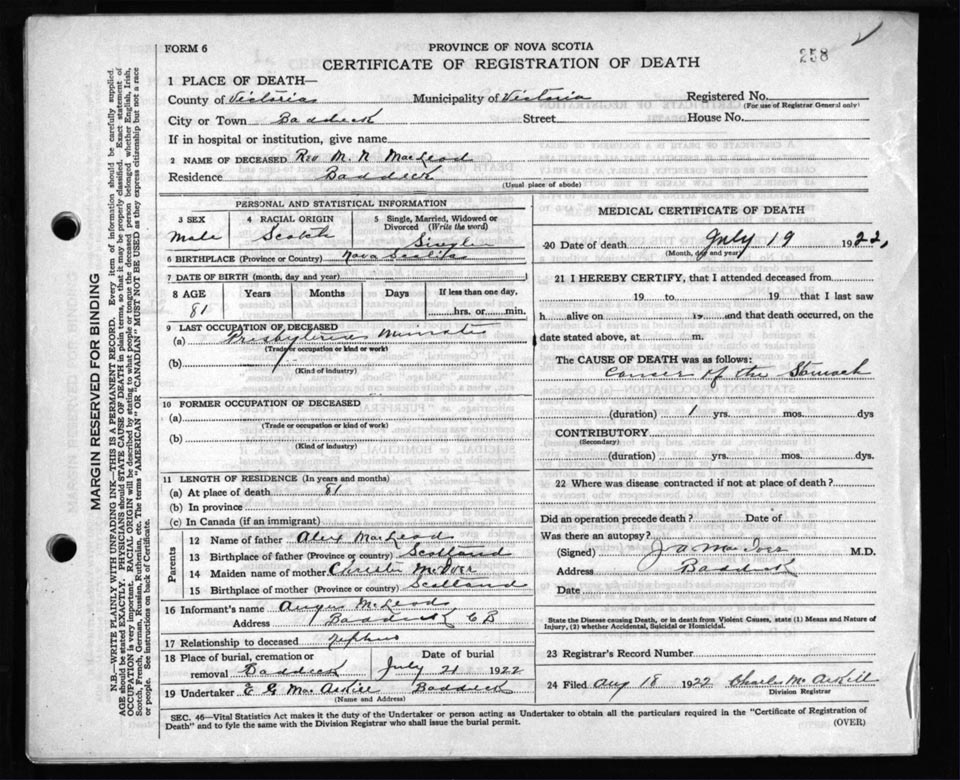 FORM 6
PROVINCE OF NOVA SCOTIA
CERTIFICATE OF REGISTRATION OF DEATH
258
1 PLACE OF DEATH—
County of Victoria Municipality of Victoria Registered No.
(For use of Registrar General only)
City or Town Baddeck Street House No.
If in hospital or institution, give name
2 NAME OF DECEASED Rev M. N MacLeod
Residence Baddeck
(Usual place of abode)
PERSONAL AND STATISTICAL INFORMATION
3 SEX 4 RACIAL ORIGIN 5 Single, Married, Widowed or Divorced (Write the word)
Male Scotch Single
6 BIRTHPLACE (Province or Country) Nova Scotia
7 DATE OF BIRTH (month, day and year)
8 AGE Years Months Days If less than one day,
81 hrs. or min.
9 LAST OCCUPATION OF DECEASED
(a) Presbyterian Minister
(Trade or occupation or kind or work)
(b)
(Kind of industry)
10 FORMER OCCUPATION OF DECEASED
(a)
(Trade or occupation or kind of work)
(b)
(Kind of industry)
11 LENGTH OF RESIDENCE (In years and months)
(a) At place of death 81
(b) In province
(c) In Canada (if an immigrant)
Parents
12 Name of father Alex MacLeod
13 Birthplace of father (Province or country) Scotland
14 Maiden name of mother McIver
15 Birthplace of mother (Province or country) Scotland
16 Informant's name Angus McLeod
Address Baddeck C B
17 Relationship to deceased
18 Place of burial, cremation or removal Baddeck Date of burial July 21 1922
19 Undertaker E G MacAskill Baddeck
(Name and Address)
MEDICAL CERTIFICATE OF DEATH
20 Date of death July 19 1922,
(Month, day and year)
21 I HEREBY CERTIFY, that I attended deceased from
19 to 19 that I last saw
h alive on 19 and that death occurred, on the
date stated above, at m.
The CAUSE OF DEATH was as follows:
Cancer of the Stomach
(duration) 1 yrs. mos. dys
CONTRIBUTORY
(Secondary)
(duration) yrs. mos. dys.
22 Where was disease contracted if not at place of death?
Did an operation precede death? Date of
Was there an autopsy?
(Signed) J a MacIver M.D.
Address Baddeck
Date
State the Disease causing Death, or in death from Violent Causes, state (1) Means and Nature of
Injury, (2) whether Accidental, Suicidal or Homicidal.
23 Registrar's Record Number
24 Filed Aug 18 1922 Charles McAskill
Division Registrar
SEC. 46—Vital Statistics Act makes it the duty of the Undertaker or person acting as Undertaker to obtain all the particulars required in the "Certificate of Registration of
Death" and to fyle the same with the Division Registrar who shall issue the burial permit.
(OVER)
MARGIN RESERVED FOR BINDING
N.B.—WRITE PLAINLY WITH UNFADING INK—THIS IS A PERMANENT RECORD. Every item of information should be carefully supplied.
AGE should be stated EXACTLY. PHYSICIANS should STATE CAUSE OF DEATH in plain terms, so that it may be properly classified. Exact statement of
OCCUPATION is very important. RACIAL ORIGIN will be described by stating to what people or tongue the deceased person belonged whether English, Irish,
Scotch, French, German, Russian, Ruthenian, etc. The terms "AMERICAN" OR "CANADIAN" MUST NOT BE USED as they express citizenship but not a race
or people. See instructions on back of Certificate.